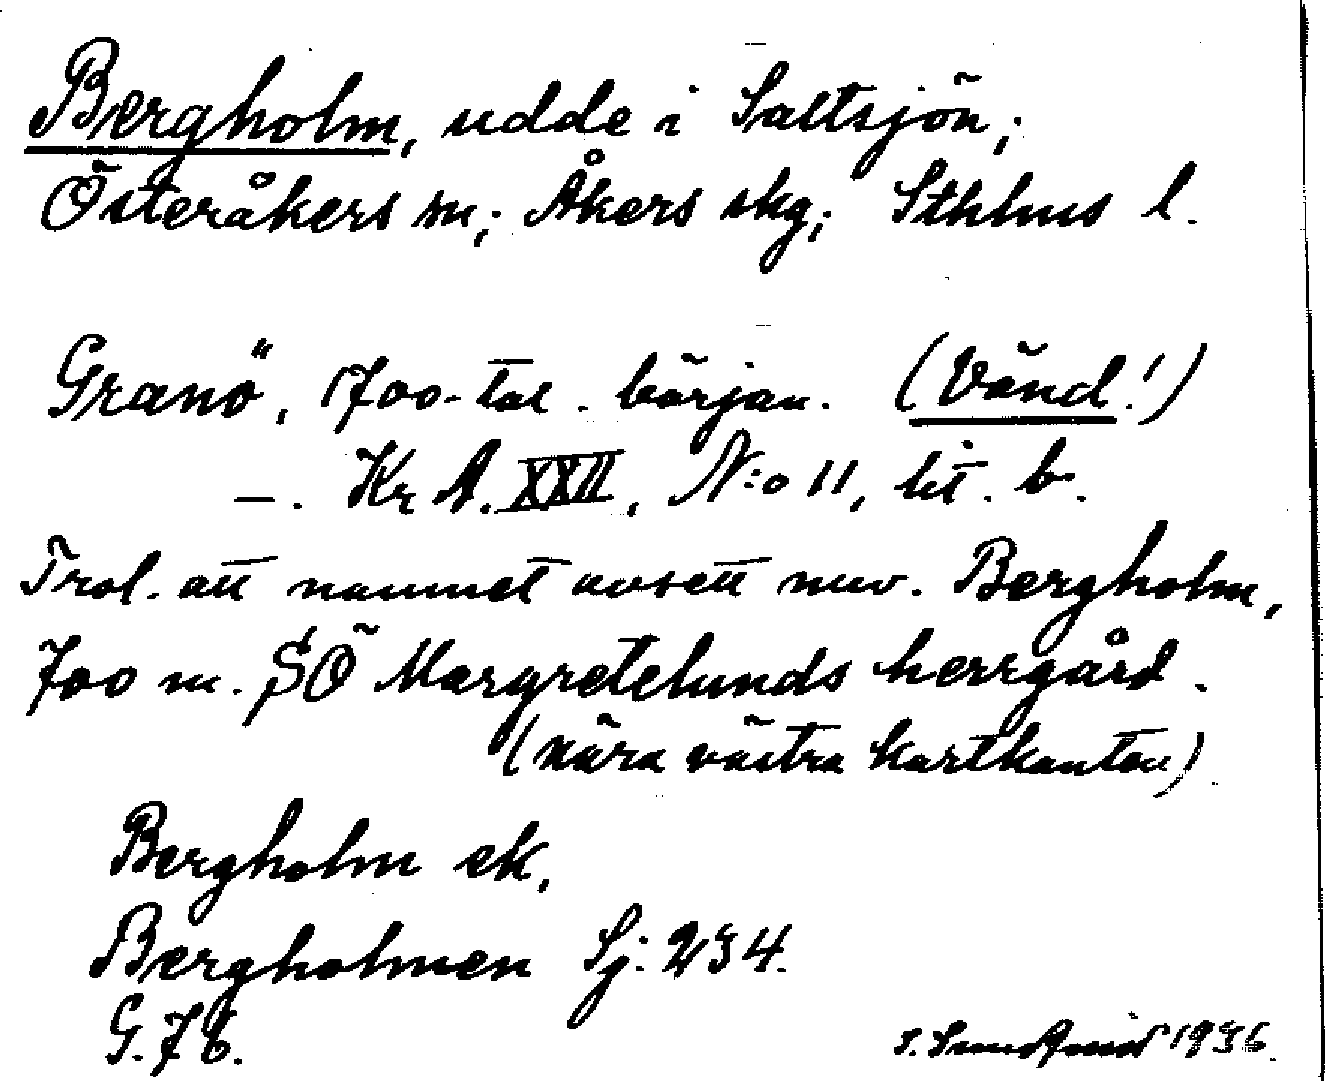 Bergholm, udde i Saltsjön;
Österåkers sn; Åkers skg; Sthlms l.
Granö, 1700-tal. början. (Vänd!)
—. Kr A. XXII, N:o 11, lit. b.
Trol. att namnet avsett nuv. Bergholm,
700 m. SÖ Margretelunds herrgård.
(nära västra kartkanten)
Bergholm ek,
Bergholmen Sj: 234.
G. 76.
1936